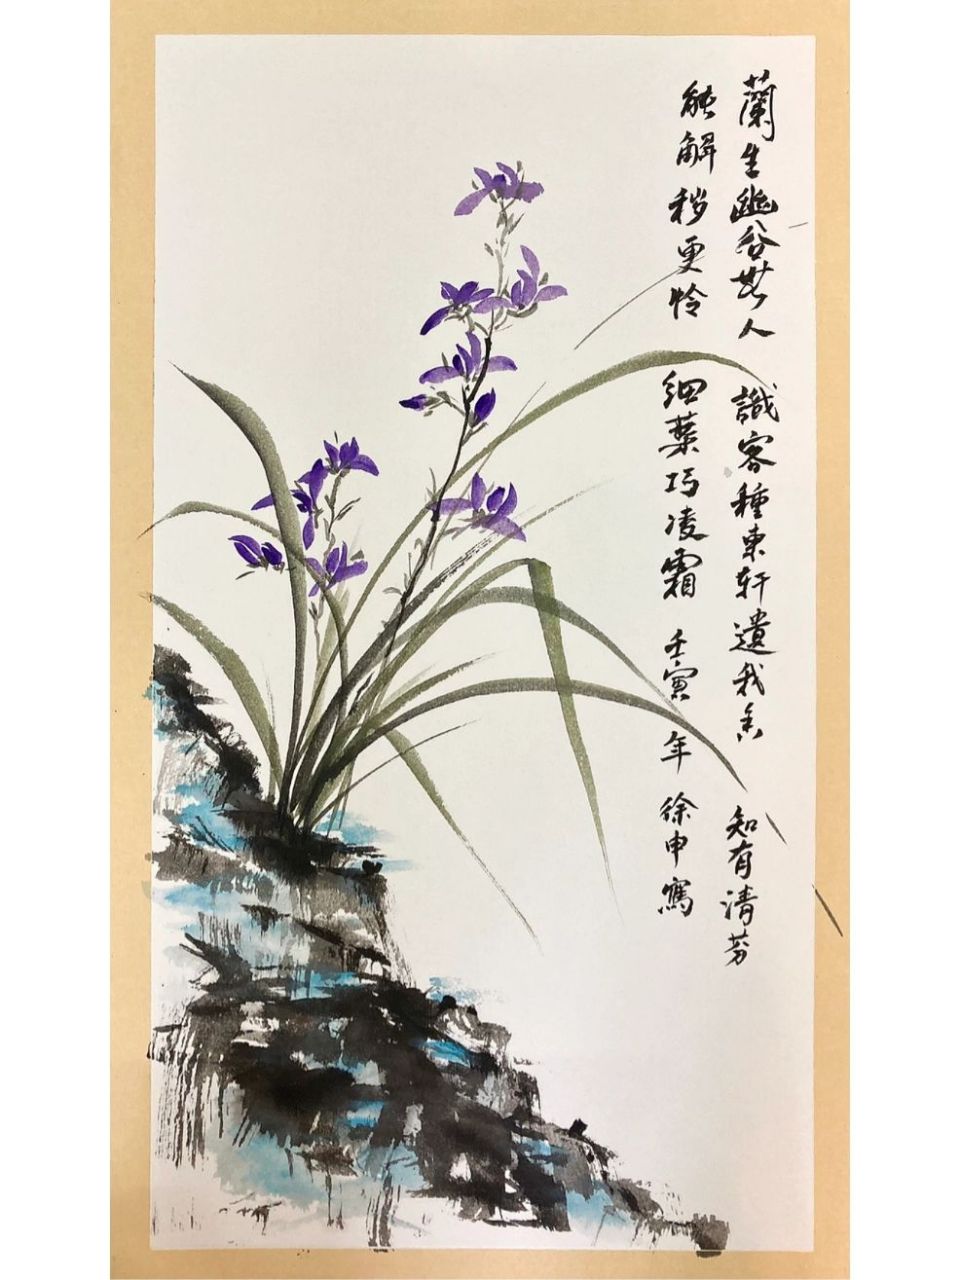 蘭生幽谷無人 識客種東軒遺我香 知有清芬
能解穢更憐 細葉巧凌霜 壬寅年 徐申寫